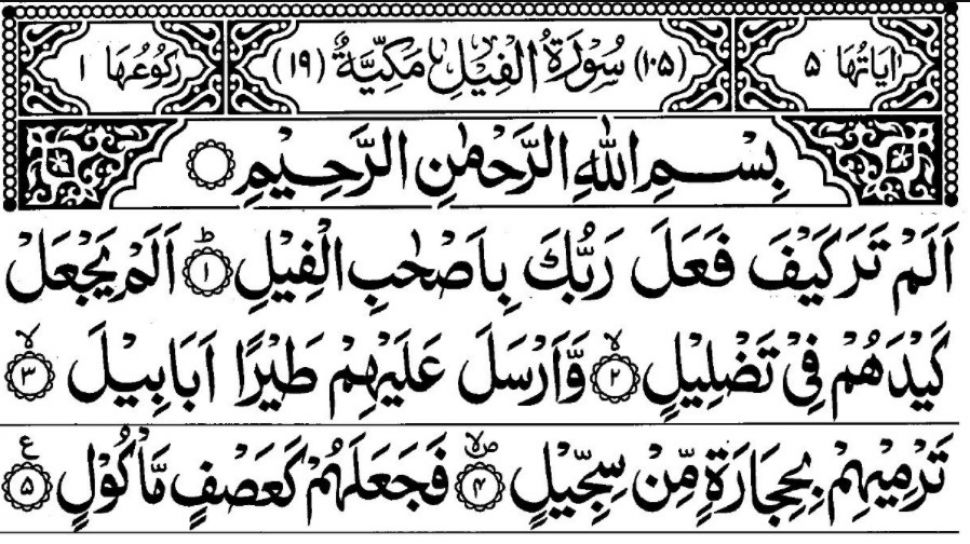 اٰيَاتُهَا ۵ (۱۰۵) سُوْرَةُ الْفِيْلِ مَكِّيَّةٌ (۱۹) رُكُوْعُهَا ۱
بِسْمِ اللّٰهِ الرَّحْمٰنِ الرَّحِيْمِ ۝
اَلَمْ تَرَ كَيْفَ فَعَلَ رَبُّكَ بِاَصْحٰبِ الْفِيْلِ ؕ﴿۱﴾ اَلَمْ يَجْعَلْ
كَيْدَهُمْ فِيْ تَضْلِيْلٍ ۙ﴿۲﴾ وَّاَرْسَلَ عَلَيْهِمْ طَيْرًا اَبَابِيْلَ ۙ﴿۳﴾
تَرْمِيْهِمْ بِحِجَارَةٍ مِّنْ سِجِّيْلٍ ۪ۙ﴿۴﴾ فَجَعَلَهُمْ كَعَصْفٍ مَّاْكُوْلٍ ﴿۵﴾ ع